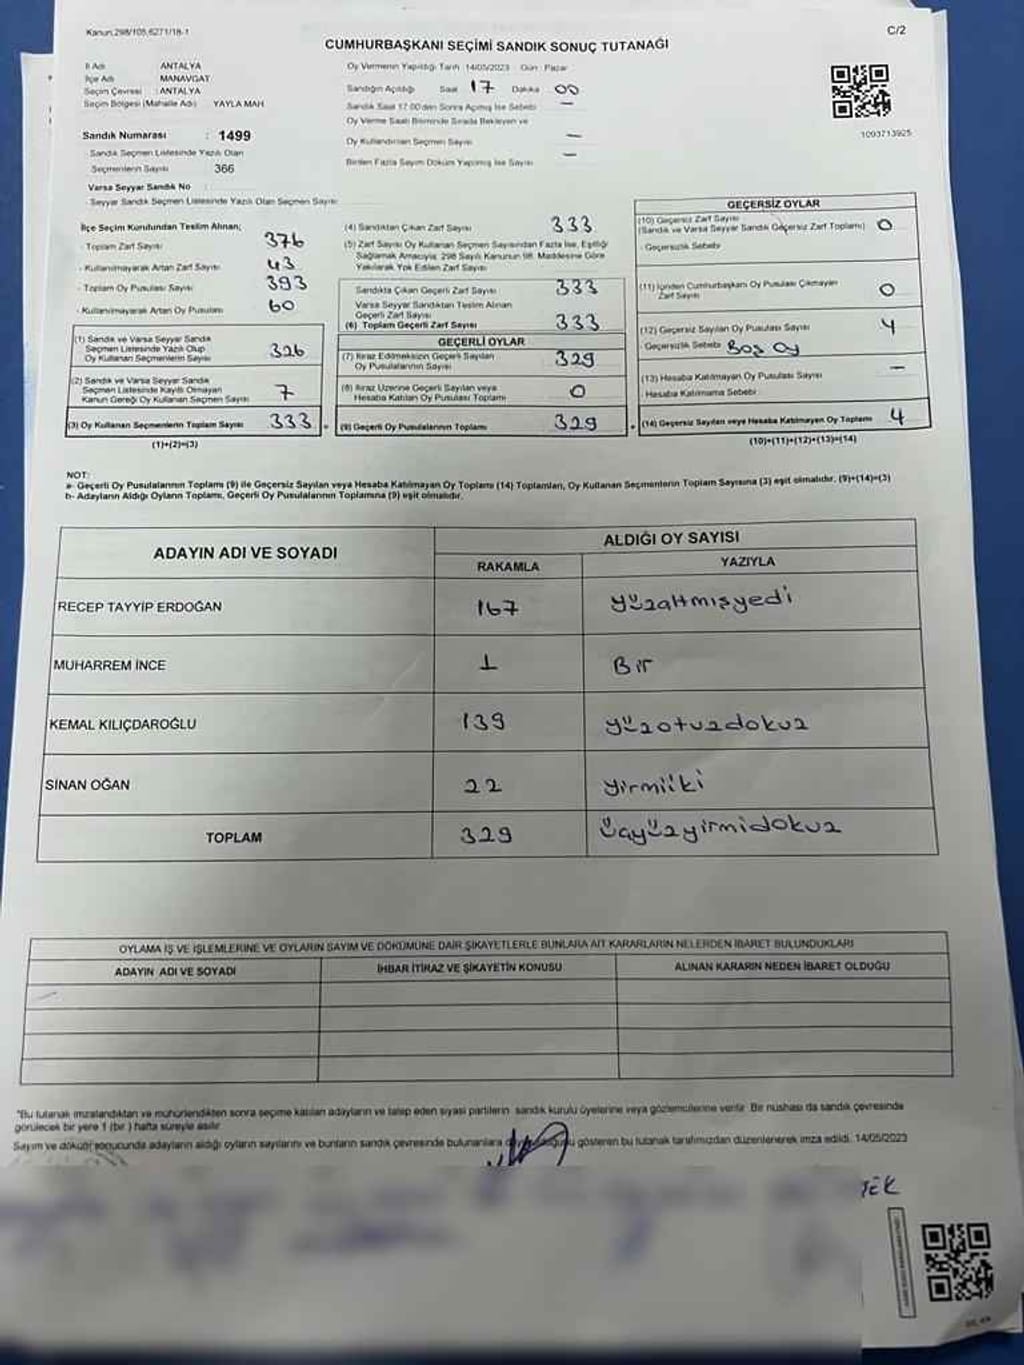 Kanun,298/105,6271/18-1
C/2
CUMHURBAŞKANI SEÇİMİ SANDIK SONUÇ TUTANAĞI
İl Adı ANTALYA
İlçe Adı MANAVGAT
Seçim Çevresi : ANTALYA
Seçim Bölgesi (Mahalle Adı) YAYLA MAH.
Sandık Numarası : 1499
Sandık Seçmen Listesinde Yazılı Olan
Seçmenlerin Sayısı 366
Varsa Seyyar Sandık No
Seyyar Sandık Seçmen Listesinde Yazılı Olan Seçmen Sayısı
Oy Vermenin Yapıldığı Tarih :14/05/2023 Gün : Pazar
Sandığın Açıldığı Saat 17 Dakika 00
Sandık Saat 17.00'den Sonra Açılmış İse Sebebi —
Oy Verme Saati Bitiminde Sırada Bekleyen ve
Oy Kullandırılan Seçmen Sayısı —
Birden Fazla Sayım Döküm Yapılmış İse Sayısı —
1093713925
İlçe Seçim Kurulundan Teslim Alınan;
- Toplam Zarf Sayısı 376
- Kullanılmayarak Artan Zarf Sayısı 43
- Toplam Oy Pusulası Sayısı 393
- Kullanılmayarak Artan Oy Pusulası 60
(1) Sandık ve Varsa Seyyar Sandık
Seçmen Listesinde Yazılı Olup
Oy Kullanan Seçmenlerin Sayısı 326
(2) Sandık ve Varsa Seyyar Sandık
Seçmen Listesinde Kayıtlı Olmayan
Kanun Gereği Oy Kullanan Seçmen Sayısı 7
(3) Oy Kullanan Seçmenlerin Toplam Sayısı 333
(1)+(2)=(3)
(4) Sandıktan Çıkan Zarf Sayısı 333
(5) Zarf Sayısı Oy Kullanan Seçmen Sayısından Fazla İse, Eşitliği
Sağlamak Amacıyla, 298 Sayılı Kanunun 98. Maddesine Göre
Yakılarak Yok Edilen Zarf Sayısı
Sandıkta Çıkan Geçerli Zarf Sayısı 333
Varsa Seyyar Sandıktan Teslim Alınan
Geçerli Zarf Sayısı
(6) Toplam Geçerli Zarf Sayısı 333
GEÇERLİ OYLAR
(7) İtiraz Edilmeksizin Geçerli Sayılan
Oy Pusulalarının Sayısı 329
(8) İtiraz Üzerine Geçerli Sayılan veya
Hesaba Katılan Oy Pusulası Toplamı 0
(9) Geçerli Oy Pusulalarının Toplamı 329
GEÇERSİZ OYLAR
(10) Geçersiz Zarf Sayısı
(Sandık ve Varsa Seyyar Sandık Geçersiz Zarf Toplamı) 0
- Geçersizlik Sebebi
(11) İçinden Cumhurbaşkanı Oy Pusulası Çıkmayan
Zarf Sayısı 0
(12) Geçersiz Sayılan Oy Pusulası Sayısı 4
- Geçersizlik Sebebi Boş Oy
(13) Hesaba Katılmayan Oy Pusulası Sayısı —
- Hesaba Katılmama Sebebi
(14) Geçersiz Sayılan veya Hesaba Katılmayan Oy Toplamı 4
(10)+(11)+(12)+(13)=(14)
NOT:
a- Geçerli Oy Pusulalarının Toplamı (9) ile Geçersiz Sayılan veya Hesaba Katılmayan Oy Toplamı (14) Toplamları, Oy Kullanan Seçmenlerin Toplam Sayısına (3) eşit olmalıdır. (9)+(14)=(3)
b- Adayların Aldığı Oyların Toplamı, Geçerli Oy Pusulalarının Toplamına (9) eşit olmalıdır.
ADAYIN ADI VE SOYADI ALDIĞI OY SAYISI
RAKAMLA YAZIYLA
RECEP TAYYİP ERDOĞAN 167 yüzaltmışyedi
MUHARREM İNCE 1 Bir
KEMAL KILIÇDAROĞLU 139 yüzotuzdokuz
SİNAN OĞAN 22 yirmiiki
TOPLAM 329 üçyüzyirmidokuz
OYLAMA İŞ VE İŞLEMLERİNE VE OYLARIN SAYIM VE DÖKÜMÜNE DAİR ŞİKAYETLERLE BUNLARA AİT KARARLARIN NELERDEN İBARET BULUNDUKLARI
ADAYIN ADI VE SOYADI İHBAR İTİRAZ VE ŞİKAYETİN KONUSU ALINAN KARARIN NEDEN İBARET OLDUĞU
*Bu tutanak imzalandıktan ve mühürlendikten sonra seçime katılan adayların ve talep eden siyasi partilerin sandık kurulu üyelerine veya gözlemcilerine verilir. Bir nüshası da sandık çevresinde
görülecek bir yere 1 (bir) hafta süreyle asılır.
Sayım ve döküm sonucunda adayların aldığı oyların sayılarını ve bunların sandık çevresinde bulunanlara gösteren bu tutanak tarafımızdan düzenlenerek imza edildi. 14/05/2023